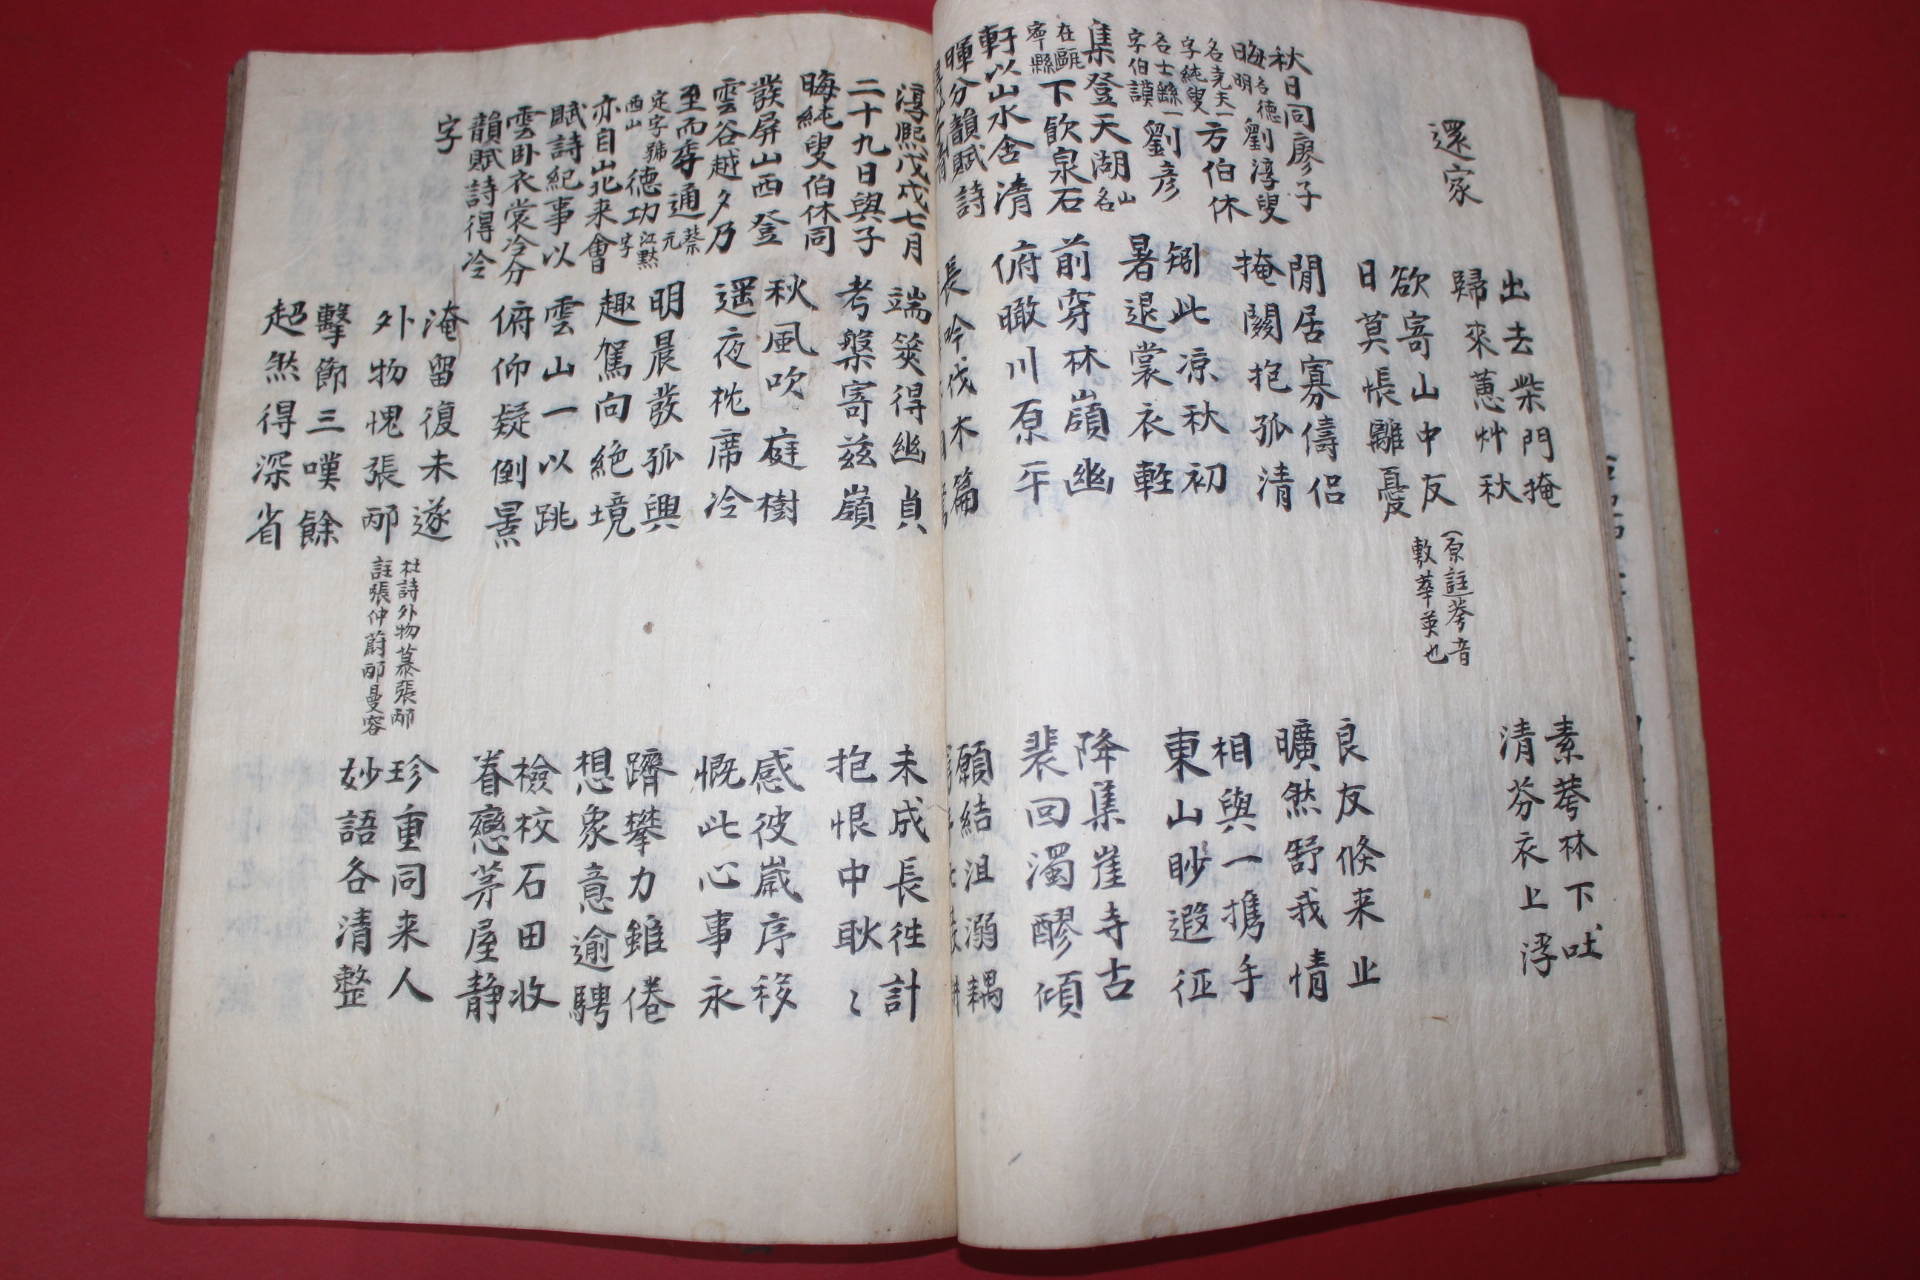 還家
出去柴門掩
歸來蕙艸秋
素荂林下吐
清芬衣上浮
欲寄山中友
日莫悵離憂
(原註荂音
敷華英也
秋日同廖子
晦名德明劉淳叟
名堯夫一
字純叟方伯休
名士繇一
字伯謨劉彦
集登天湖山名
在甌
寧縣下飲泉石
軒以山水含清
暉分韻賦詩
閒居寡儔侶
掩關抱孤清
良友倏来止
曠然舒我情
矧此凉秋初
暑退裳衣輕
相與一攜手
東山眇遐征
前穿林嶺幽
俯瞰川原平
降集崖寺古
裴回濁醪傾
長吟伐木篇
願結沮溺耦
淳熙戊戌七月
二十九日與子
晦純叟伯休同
發屏山西登
雲谷越夕乃
至而季通蔡元
定字號
西山德功江默
字
亦自山北来會
賦詩紀事以
雲卧衣裳冷分
韻賦詩得冷
字
端筴得幽貞
考槃寄兹嶺
未成長往計
抱恨中耿〻
秋風吹庭樹
遥夜枕席冷
感彼歲序移
慨此心事永
明晨發孤興
趣駕向絶境
躋攀力雖倦
想象意逾騁
雲山一以眺
俯仰疑倒景
檢校石田收
眷戀茅屋静
淹留復未遂
外物愧張邴
杜詩外物慕張邴
註張仲蔚邴曼容
珍重同来人
妙語各清整
擊節三嘆餘
超然得深省